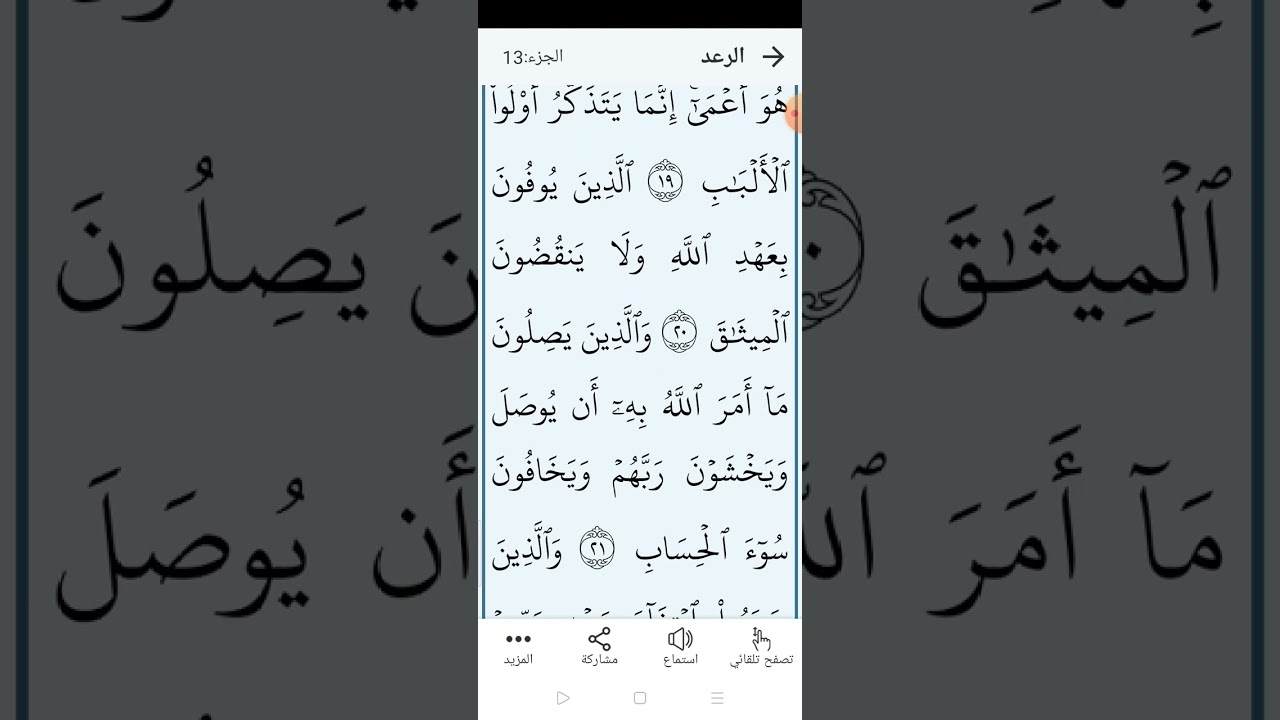 الرعد
الجزء:13
هُوَ أَعۡمَىٰٓۚ إِنَّمَا يَتَذَكَّرُ أُوْلُواْ
ٱلۡأَلۡبَٰبِ ١٩ ٱلَّذِينَ يُوفُونَ
بِعَهۡدِ ٱللَّهِ وَلَا يَنقُضُونَ
ٱلۡمِيثَٰقَ ٢٠ وَٱلَّذِينَ يَصِلُونَ
مَآ أَمَرَ ٱللَّهُ بِهِۦٓ أَن يُوصَلَ
وَيَخۡشَوۡنَ رَبَّهُمۡ وَيَخَافُونَ
سُوٓءَ ٱلۡحِسَابِ ٢١ وَٱلَّذِينَ
تصفح تلقائي
استماع
مشاركة
المزيد